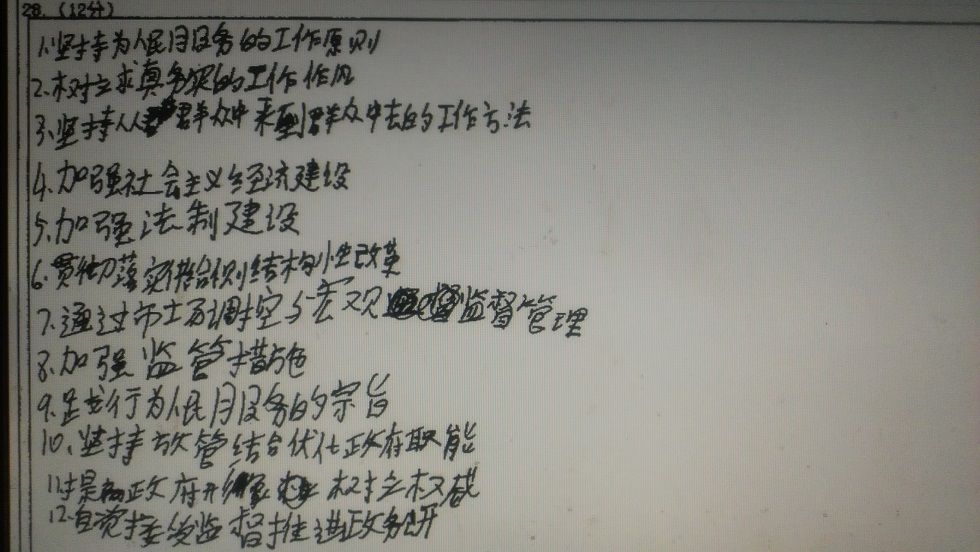 28.（12分）
1.坚持为人民服务的工作原则
2.树立求真务实的工作作风
3.坚持从群众中来到群众中去的工作方法
4.加强社会主义经济建设
5.加强法制建设
6.贯彻落实供给侧结构性改革
7.通过市场调控与宏观监督管理
8.加强监管措施
9.履行为人民服务的宗旨
10.坚持放管结合优化政府职能
11.提高政府形象树立权威
12.自觉接受监督推进政务公开